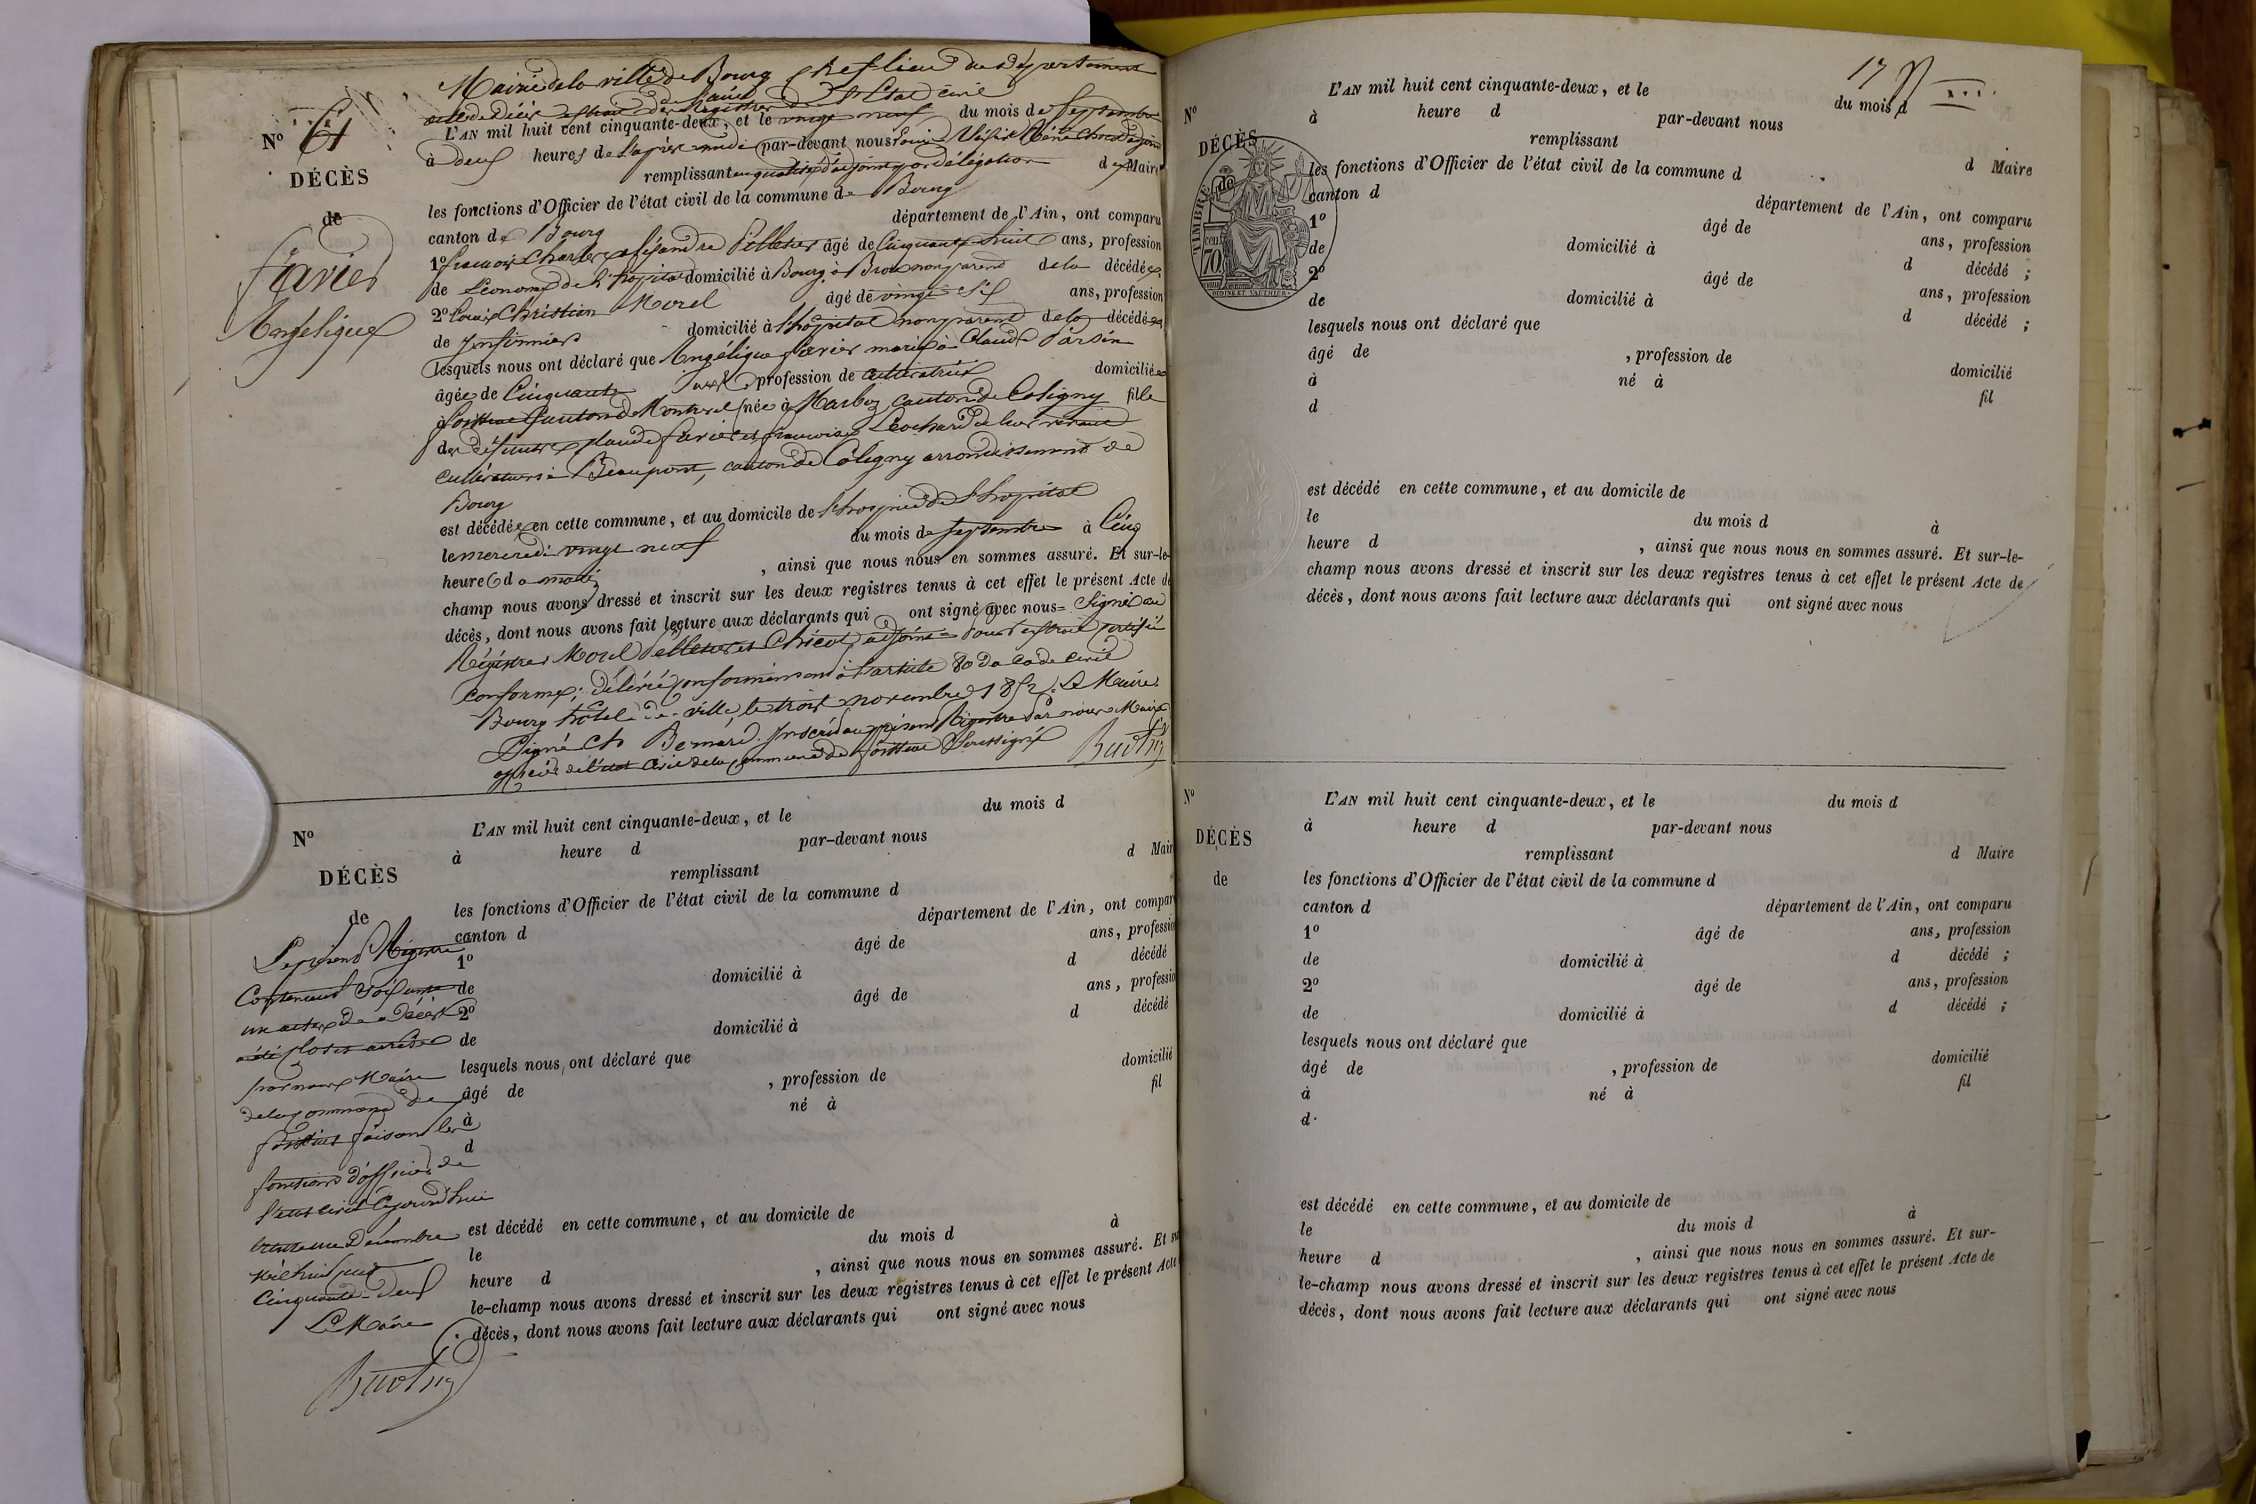 Mairie de la ville de Bourg chef lieu du département
acte de Décès extrait des Registres de l'Etat civil
L'AN mil huit cent cinquante-deux, et le vingt neuf du mois de Septembre
Nº 61
à deux heures de l'après midi par-devant nous Chicot adjoint
remplissant en qualité d'adjoint par délégation d Maire
DÉCÈS
les fonctions d'Officier de l'état civil de la commune de Bourg
de
canton de Bourg département de l'Ain, ont comparu
favier
Angélique
1º françois Charles Alexandre Pelletier âgé de Cinquante huit ans, profession
de Econome de l'hopital domicilié à Bourg à Brou non parent de la décédée
2º Louis Christian Morel âgé de vingt six ans, profession
de Infirmier domicilié à l'hôpital non parent de la décédée
lesquels nous ont déclaré que Angélique favier mariée à Claude
âgée de Cinquante profession de cultivatrice domiciliée
à foissiat Canton de Montrevel née à Marboz canton de Coligny fille
des défunts Claude favier et françoise de leur vivant
cultivateurs à Beaupont, canton de Coligny arrondissement de
Bourg
est décédée en cette commune, et au domicile de l'hospice de l'hopital
le mercredi vingt neuf du mois de septembre à Cinq
heures du matin, ainsi que nous nous en sommes assuré. Et sur-le-
champ nous avons dressé et inscrit sur les deux registres tenus à cet effet le présent Acte de
décès, dont nous avons fait lecture aux déclarants qui ont signé avec nous = Signé au
Régistre Morel Pelletier et Chicot, adjoint = Pour extrait certifié
conforme; délivré conformément à l'article 80 du Code civil
Bourg hôtel de ville, le trois novembre 1852. Le Maire
Signé Ch Bernard. Inscrit au présent Régistre par nous Maire
officier de l'état civil de la commune de foissiat Soussigné
Nº
L'AN mil huit cent cinquante-deux, et le du mois d
à heure d par-devant nous
DÉCÈS
remplissant d Maire
les fonctions d'Officier de l'état civil de la commune d
de
canton d département de l'Ain, ont comparu
1º âgé de ans, profession
de domicilié à d décédé
2º âgé de ans, profession
de domicilié à d décédé
lesquels nous ont déclaré que
âgé de , profession de domicilié
à né à fil
d
est décédé en cette commune, et au domicile de
le du mois d à
heure d , ainsi que nous nous en sommes assuré. Et sur
le-champ nous avons dressé et inscrit sur les deux registres tenus à cet effet le présent Acte
décès, dont nous avons fait lecture aux déclarants qui ont signé avec nous
Le présent Régistre
Contenant Soixante
un actes de Décès
a été clos et arrêté
par nous Maire
de la commune de
foissiat faisant les
fonctions d'officier de
l'état civil Cejourd'hui
trente un Décembre
mil huit cent
Cinquante-deux
Le Maire
17
Nº
L'AN mil huit cent cinquante-deux, et le du mois d
à heure d par-devant nous
DÉCÈS
remplissant d Maire
les fonctions d'Officier de l'état civil de la commune d
de
canton d département de l'Ain, ont comparu
TIMBRE
70
1º âgé de ans, profession
de domicilié à d décédé ;
2º âgé de ans, profession
de domicilié à d décédé ;
lesquels nous ont déclaré que
âgé de , profession de domicilié
à né à fil
d
est décédé en cette commune, et au domicile de
le du mois d à
heure d , ainsi que nous nous en sommes assuré. Et sur-le-
champ nous avons dressé et inscrit sur les deux registres tenus à cet effet le présent Acte de
décès, dont nous avons fait lecture aux déclarants qui ont signé avec nous
Nº
L'AN mil huit cent cinquante-deux, et le du mois d
à heure d par-devant nous
DÉCÈS
remplissant d Maire
de
les fonctions d'Officier de l'état civil de la commune d
canton d département de l'Ain, ont comparu
1º âgé de ans, profession
de domicilié à d décédé ;
2º âgé de ans, profession
de domicilié à d décédé ;
lesquels nous ont déclaré que
âgé de , profession de domicilié
à né à fil
d
est décédé en cette commune, et au domicile de
le du mois d à
heure d , ainsi que nous nous en sommes assuré. Et sur-
le-champ nous avons dressé et inscrit sur les deux registres tenus à cet effet le présent Acte de
décès, dont nous avons fait lecture aux déclarants qui ont signé avec nous